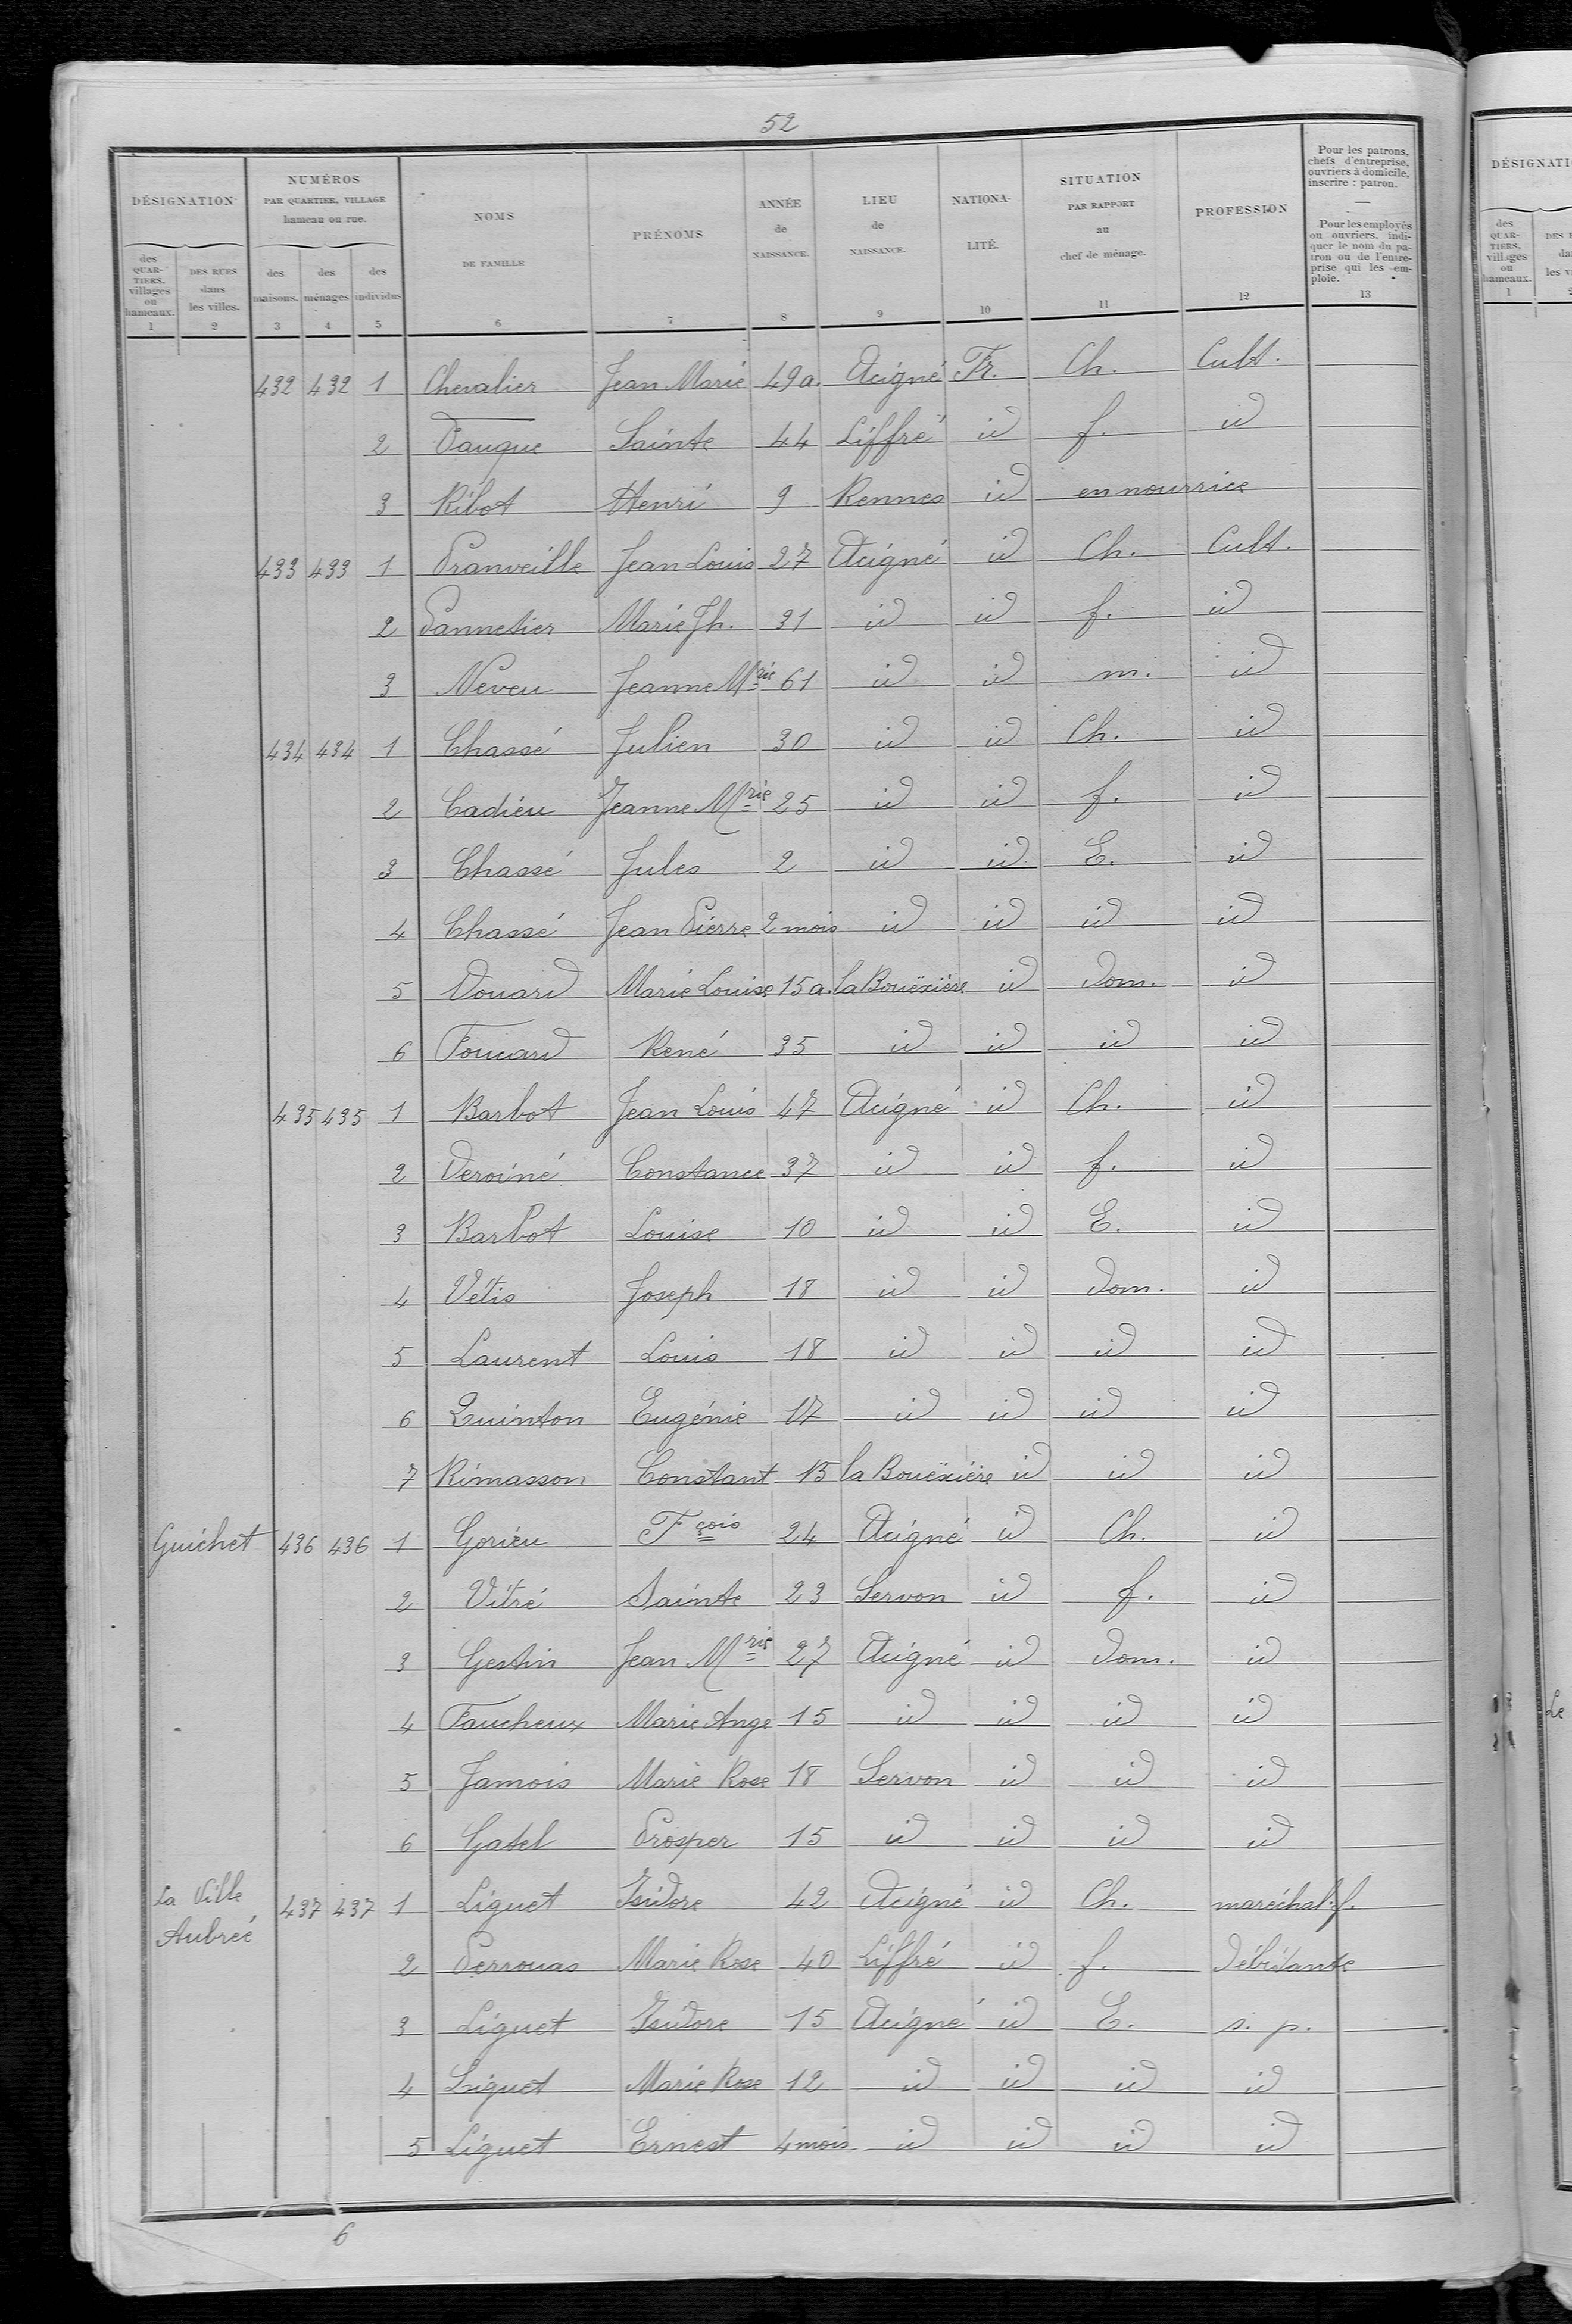 52
DÉSIGNATION
NUMÉROS
PAR QUARTIER, VILLAGE
hameau ou rue.
des QUAR-TIERS, villages ou hameaux.
DES RUES dans les villes.
des maisons.
des ménages
des individus
NOMS DE FAMILLE
PRÉNOMS
ANNÉE de NAISSANCE.
LIEU de NAISSANCE.
NATIONA-LITÉ.
SITUATION PAR RAPPORT au chef de ménage.
PROFESSION
Pour les patrons, chefs d'entreprise, ouvriers à domicile, inscrire : patron.
—
Pour les employés ou ouvriers, indi-quer le nom du pa-tron ou de l'entre-prise qui les em-ploie.
1 2 3 4 5 6 7 8 9 10 11 12 13
432 432 1 Chevalier Jean Marie 49 a. Acigné Fr. Ch. Cult.
2 Dauguе Sainte 44 Liffré id f. id
3 Ribot Henri 9 Rennes id en nourrice
433 433 1 Pranveille Jean Louis 27 Acigné id Ch. Cult.
2 Pannetier Marie Jh. 31 id id f. id
3 Neveu Jeanne Mrie 61 id id m. id
434 434 1 Chassé Julien 30 id id Ch. id
2 Cadieu Jeanne Mrie 25 id id f. id
3 Chassé Jules 2 id id E. id
4 Chassé Jean Pierre 2 mois id id id id
5 Douard Marie Louise 15 a. la Bouëxière id dom. id
6 Foucard René 35 id id id id
435 435 1 Barbot Jean Louis 47 Acigné id Ch. id
2 Deroiné Constance 37 id id f. id
3 Barbot Louise 10 id id E. id
4 Vétis Joseph 18 id id dom. id
5 Laurent Louis 18 id id id id
6 Quinton Eugénie 17 id id id id
7 Rimasson Constant 15 la Bouëxière id id id
Guichet 436 436 1 Gorieu Fçois 24 Acigné id Ch. id
2 Vitré Sainte 23 Servon id f. id
3 Gestin Jean Mrie 27 Acigné id dom. id
4 Faucheux Marie Ange 15 id id id id
5 Jamois Marie Rose 18 Servon id id id
6 Gatel Prosper 15 id id id id
La Ville Aubrée 437 437 1 Liguet Isidore 42 Acigné id Ch. maréchal-f.
2 Perrouas Marie Rose 40 Liffré id f. débitante
3 Liguet Isidore 15 Acigné id E. s. p.
4 Liguet Marie Rose 12 id id id id
5 Liguet Ernest 4 mois id id id id
6